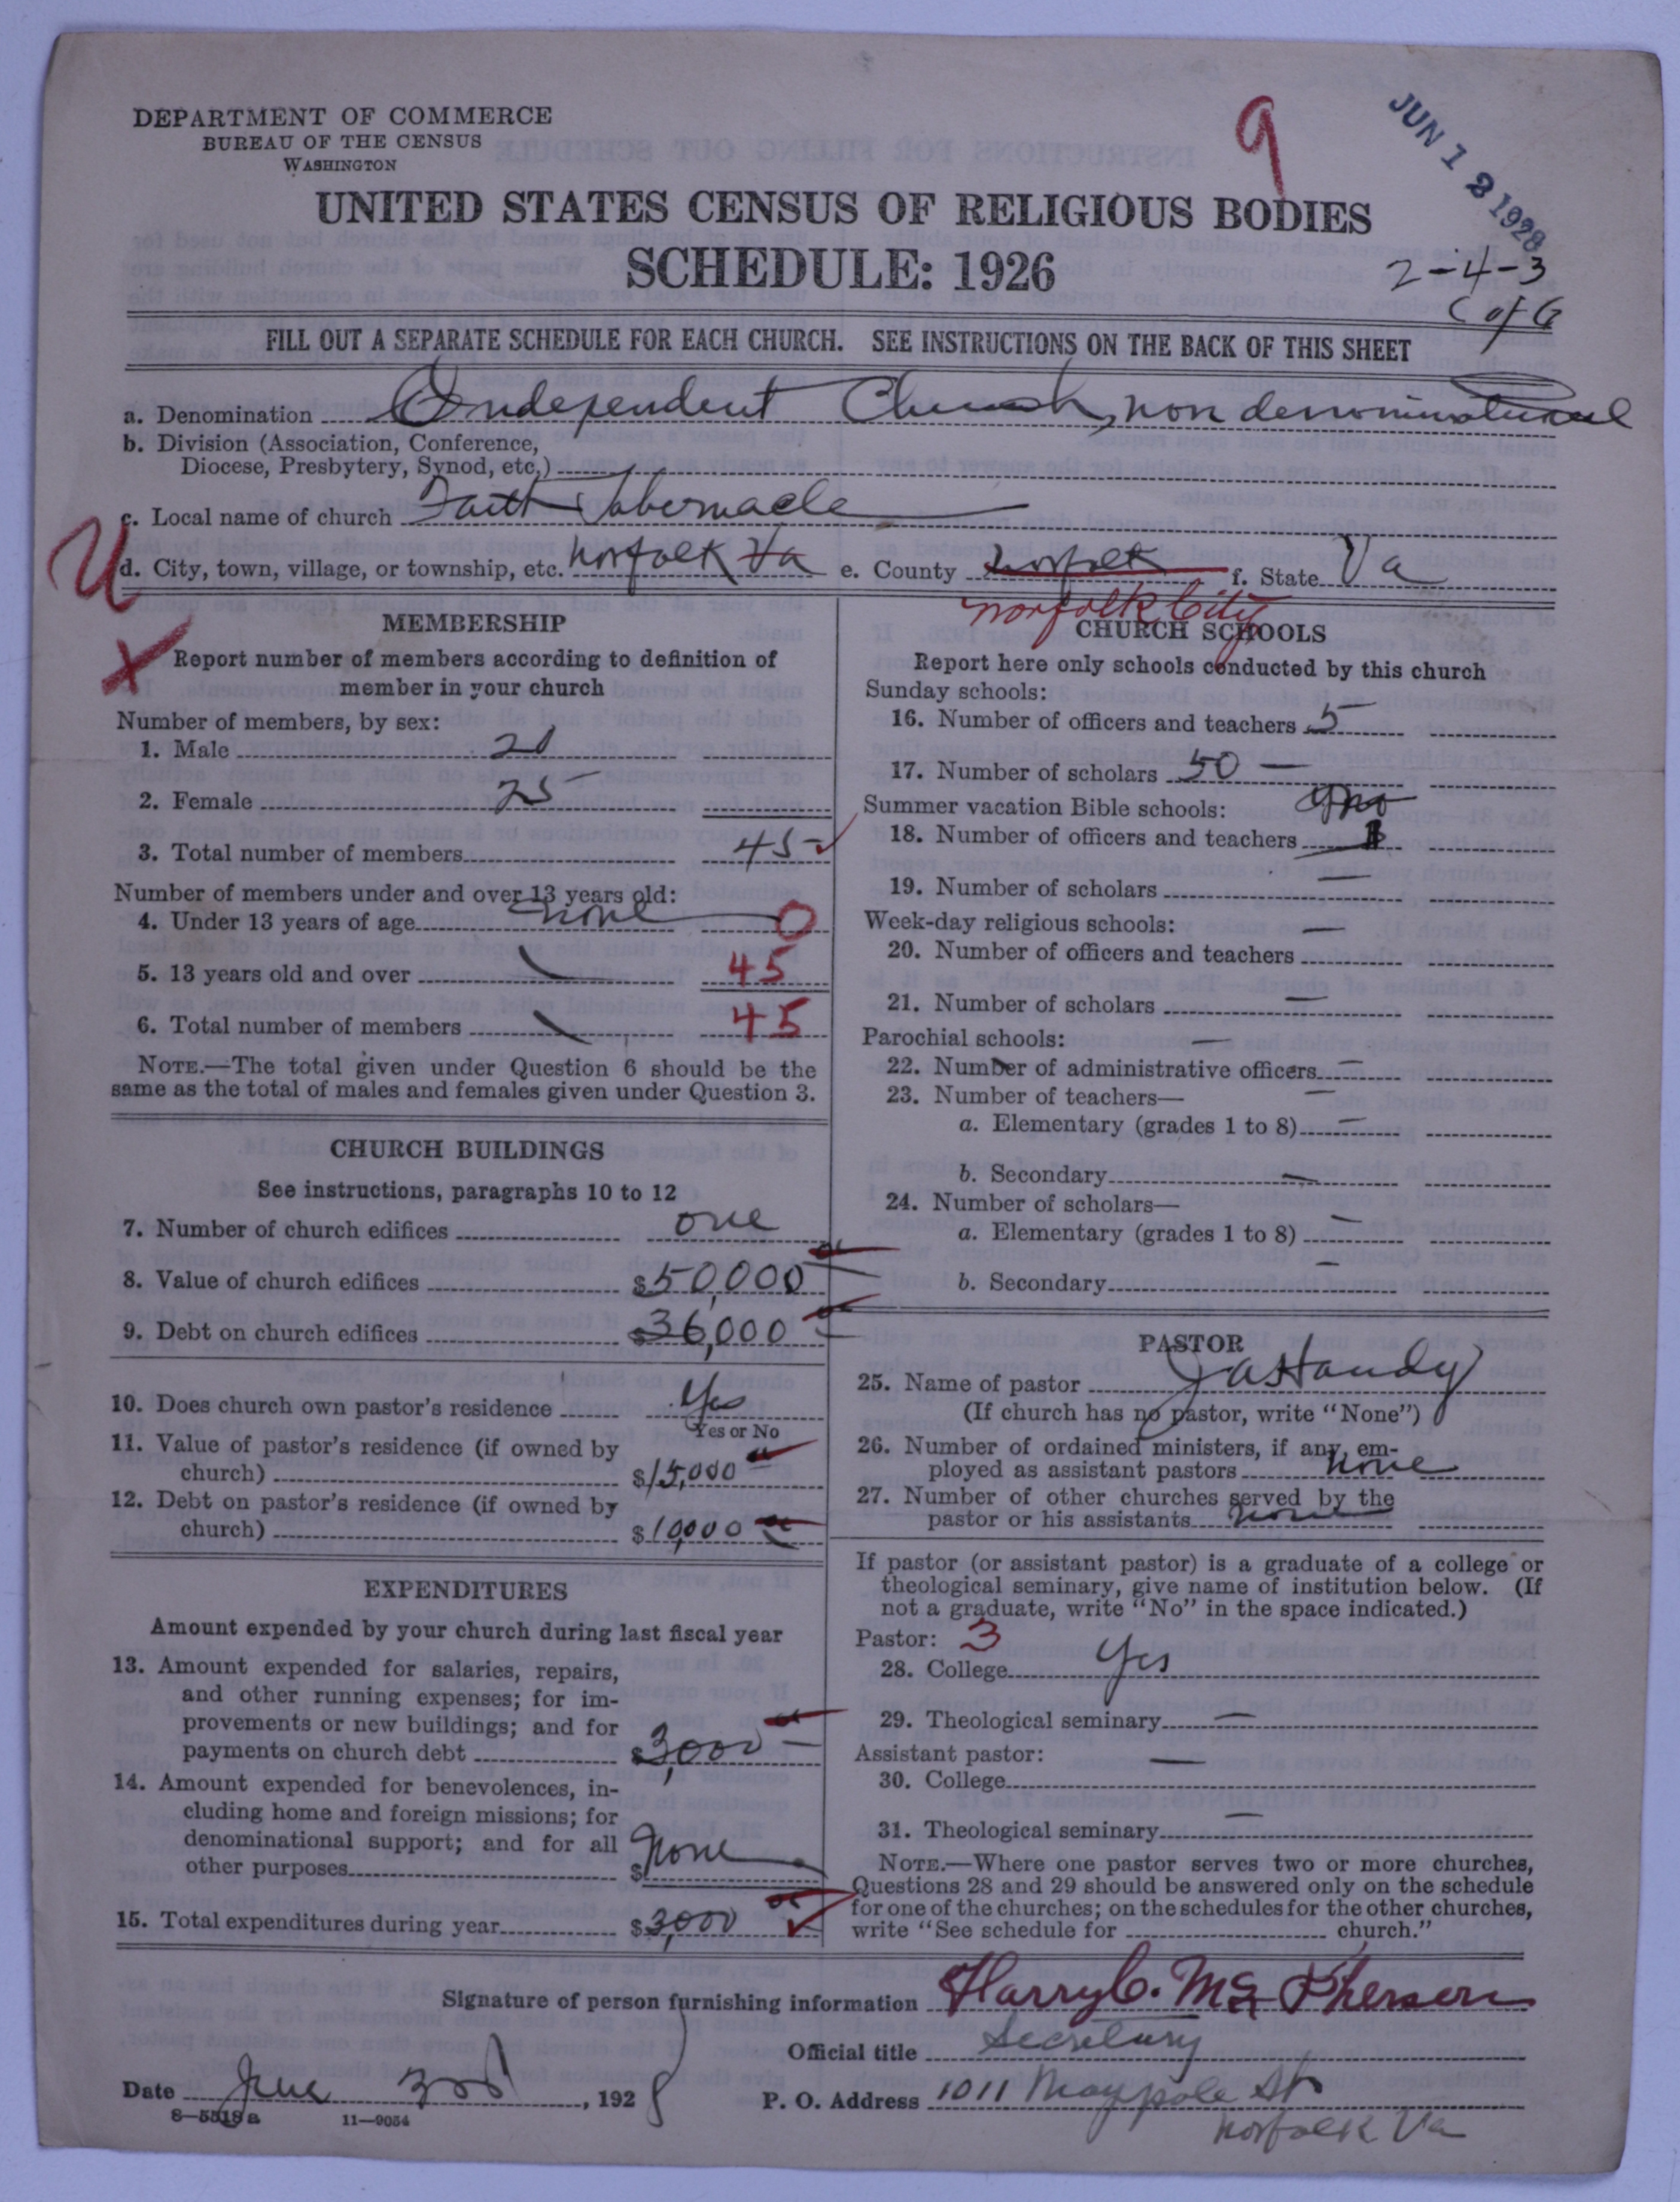 DEPARTMENT OF COMMERCE
BUREAU OF THE CENSUS
WASHINGTON
9
JUN 13 1928
UNITED STATES CENSUS OF RELIGIOUS BODIES
SCHEDULE: 1926
2-4-3
C of G
FILL OUT A SEPARATE SCHEDULE FOR EACH CHURCH. SEE INSTRUCTIONS ON THE BACK OF THIS SHEET
a. Denomination Independent Church, non denominational
b. Division (Association, Conference,
Diocese, Presbytery, Synod, etc.)
c. Local name of church Faith Tabernacle
U
d. City, town, village, or township, etc. Norfolk Va e. County Norfolk f. State Va
Norfolk City
MEMBERSHIP
X Report number of members according to definition of
member in your church
Number of members, by sex:
1. Male 20
2. Female 25
3. Total number of members 45
Number of members under and over 13 years old:
4. Under 13 years of age none 0
5. 13 years old and over 45
6. Total number of members 45
NOTE.—The total given under Question 6 should be the
same as the total of males and females given under Question 3.
CHURCH BUILDINGS
See instructions, paragraphs 10 to 12
7. Number of church edifices one
8. Value of church edifices $50,000
9. Debt on church edifices $36,000
10. Does church own pastor's residence Yes
Yes or No
11. Value of pastor's residence (if owned by
church) $15,000
12. Debt on pastor's residence (if owned by
church) $10,000
EXPENDITURES
Amount expended by your church during last fiscal year
13. Amount expended for salaries, repairs,
and other running expenses; for im-
provements or new buildings; and for
payments on church debt $3,000
14. Amount expended for benevolences, in-
cluding home and foreign missions; for
denominational support; and for all
other purposes $None
15. Total expenditures during year $3,000
CHURCH SCHOOLS
Report here only schools conducted by this church
Sunday schools:
16. Number of officers and teachers 5
17. Number of scholars 50 —
Summer vacation Bible schools: no
18. Number of officers and teachers
19. Number of scholars —
Week-day religious schools: —
20. Number of officers and teachers
21. Number of scholars —
Parochial schools: —
22. Number of administrative officers —
23. Number of teachers— —
a. Elementary (grades 1 to 8) —
b. Secondary —
24. Number of scholars—
a. Elementary (grades 1 to 8) —
b. Secondary —
PASTOR
25. Name of pastor J A Handy
(If church has no pastor, write "None")
26. Number of ordained ministers, if any, em-
ployed as assistant pastors none
27. Number of other churches served by the
pastor or his assistants none
If pastor (or assistant pastor) is a graduate of a college or
theological seminary, give name of institution below. (If
not a graduate, write "No" in the space indicated.)
Pastor: 3
28. College Yes
29. Theological seminary —
Assistant pastor: —
30. College
31. Theological seminary —
NOTE.—Where one pastor serves two or more churches,
Questions 28 and 29 should be answered only on the schedule
for one of the churches; on the schedules for the other churches,
write "See schedule for church."
Signature of person furnishing information Harry C. McPherson
Official title Secretary
Date June 3rd, 1928 P. O. Address 1011 Maypole St
Norfolk Va
8—5518a 11—9034